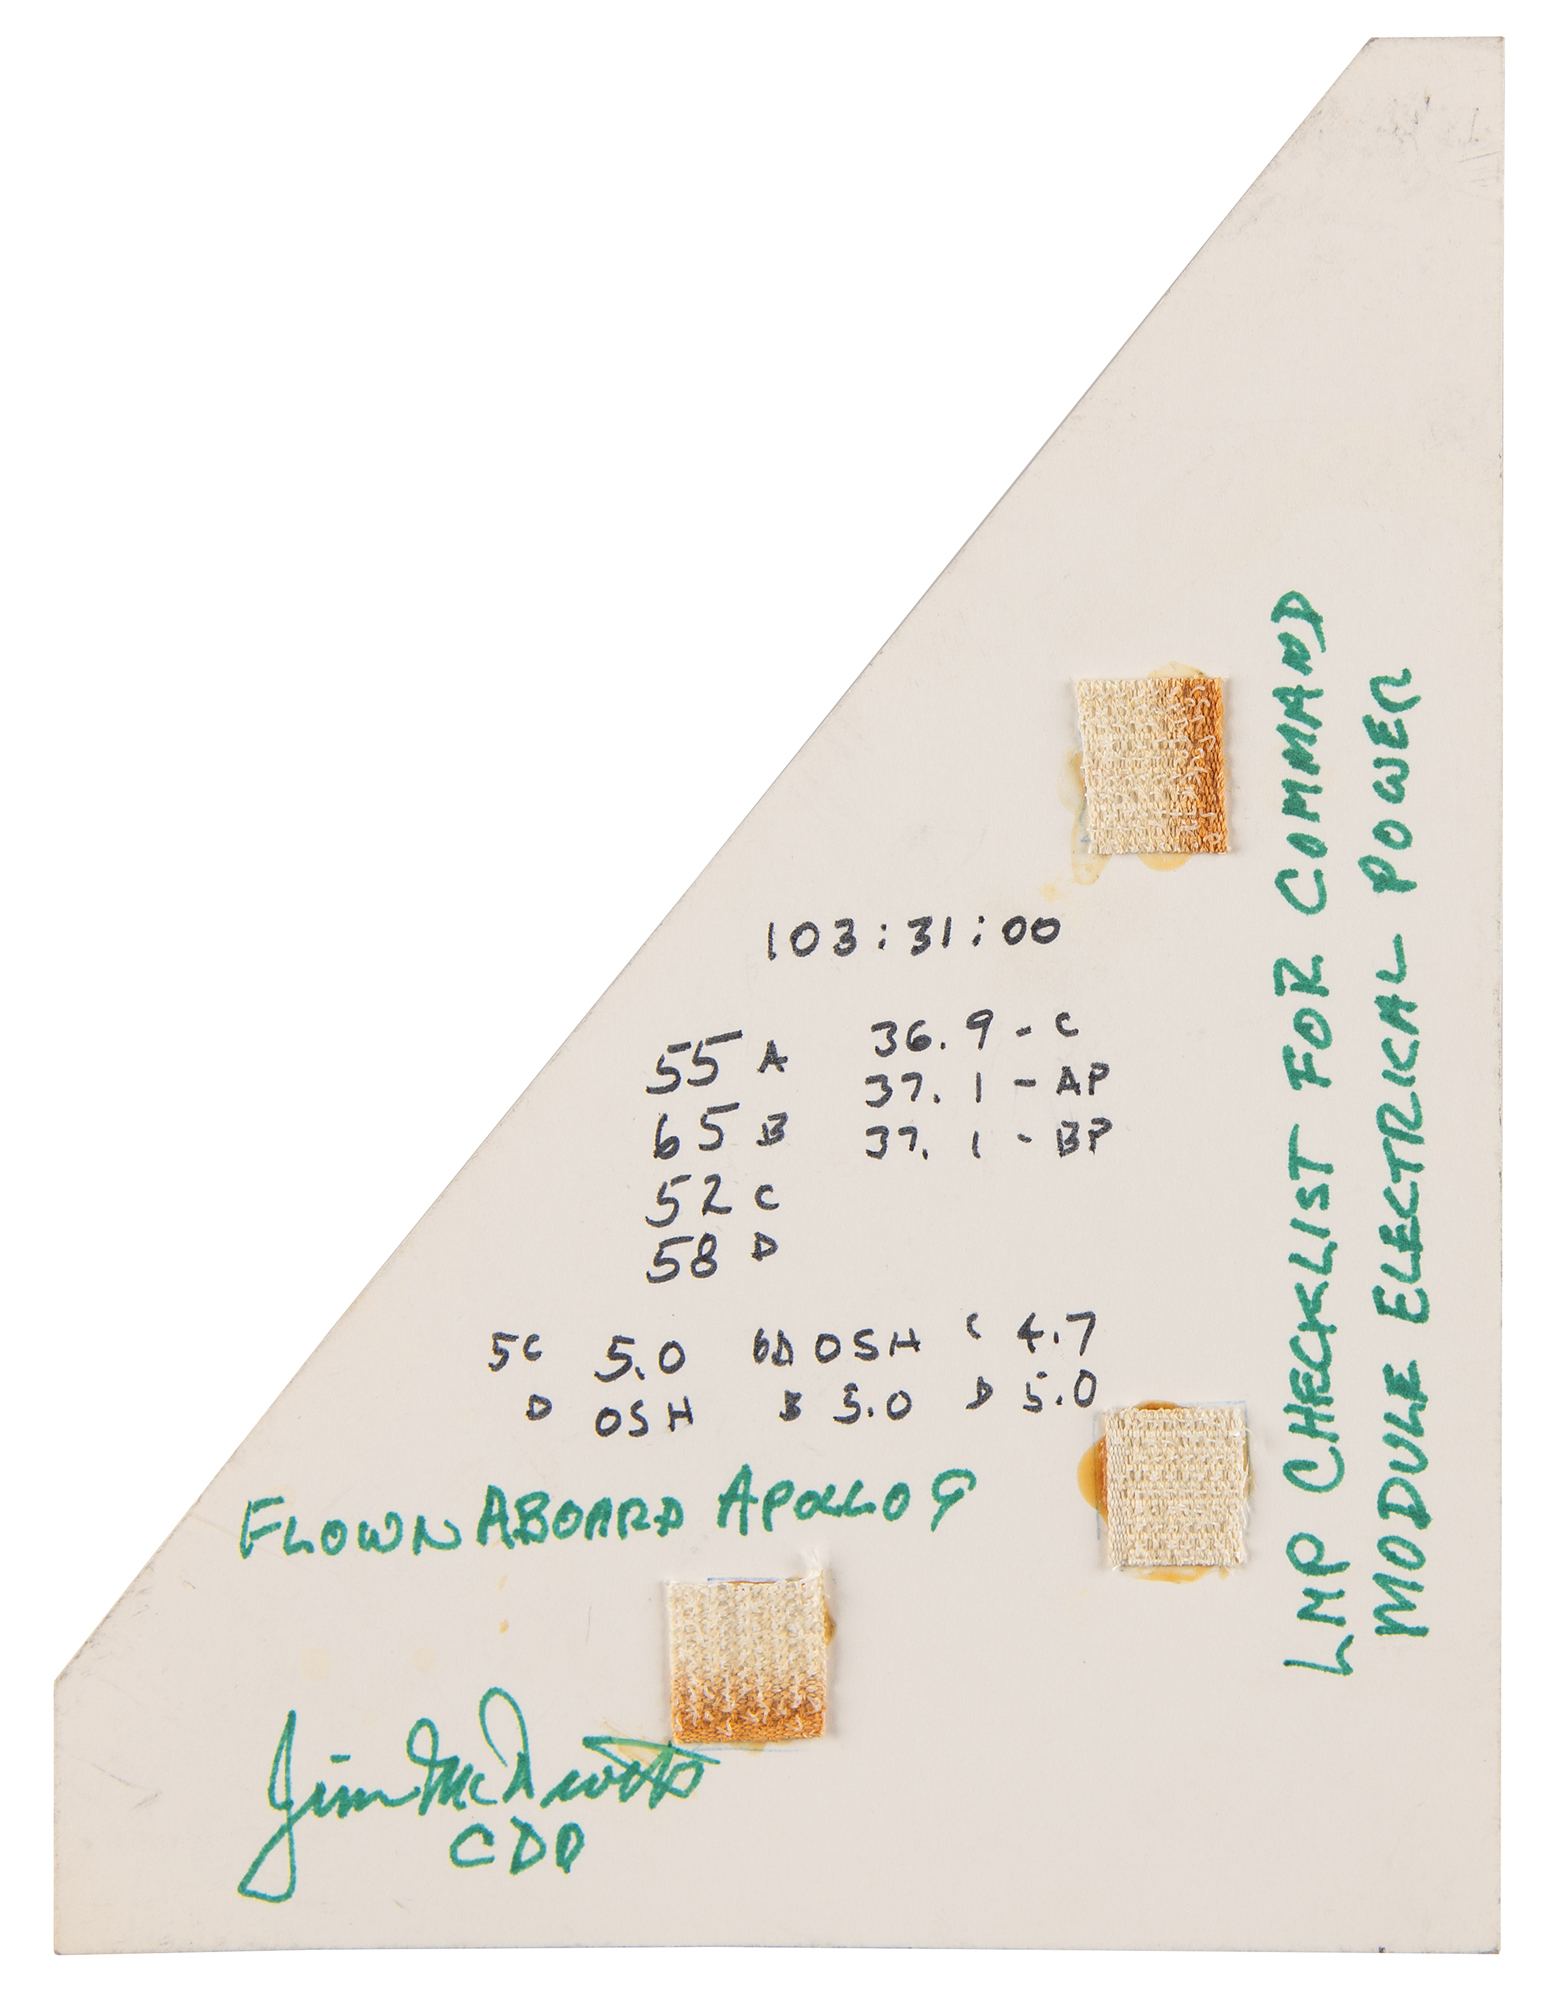 103:31:00
55 A 36.9 - C
37.1 - AP
65 B 37.1 - BP
52 C
58 D
5C 5.0 6A OSH C 4.7
D OSH B 5.0 D 5.0
FLOWN ABOARD APOLLO 9
Jim McDivitt
CDR
LMP CHECKLIST FOR COMMAND
MODULE ELECTRICAL POWER